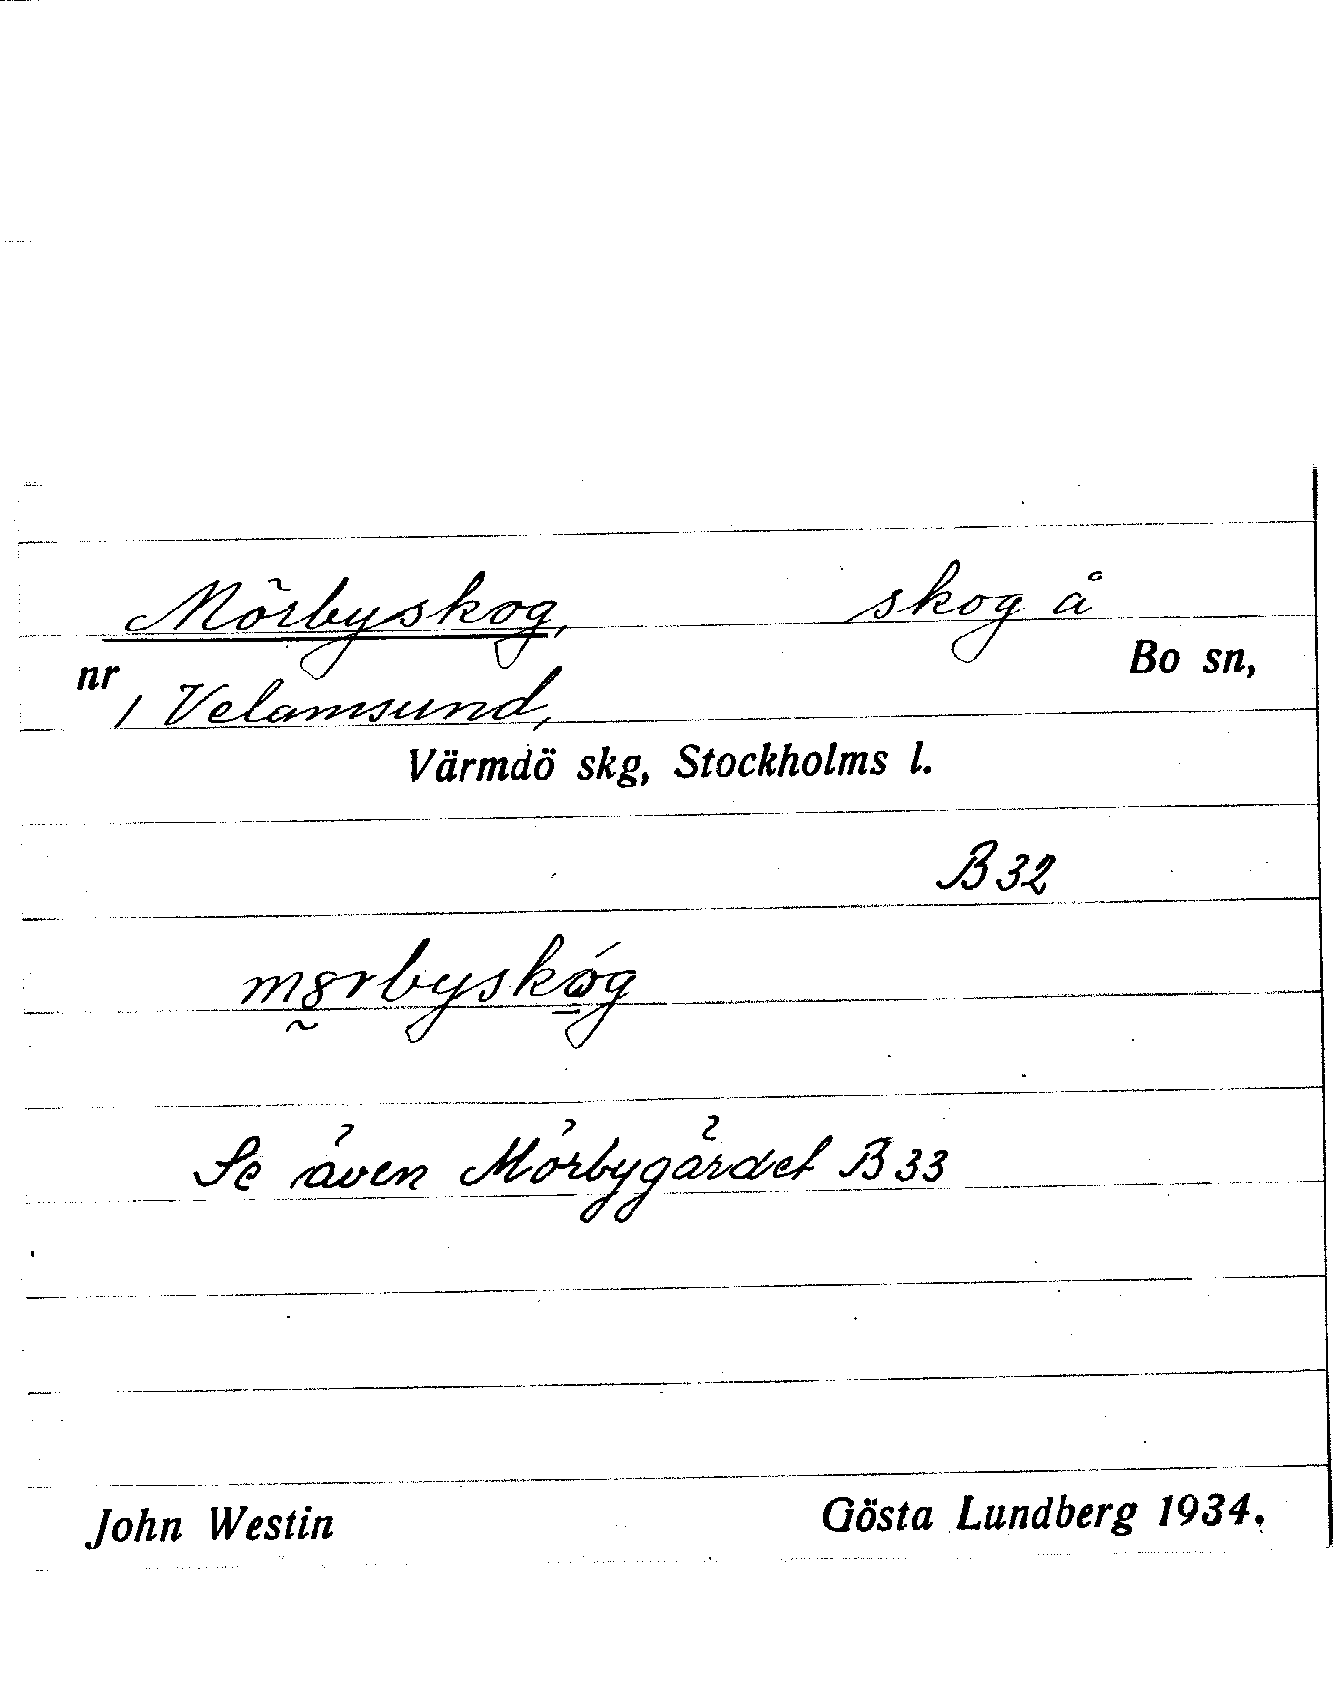 Mörbyskog, skog å
nr Bo sn,
1 Velamsund,
Värmdö skg, Stockholms l.
B 32
Se även Mörbygärdet B 33
John Westin Gösta Lundberg 1934.